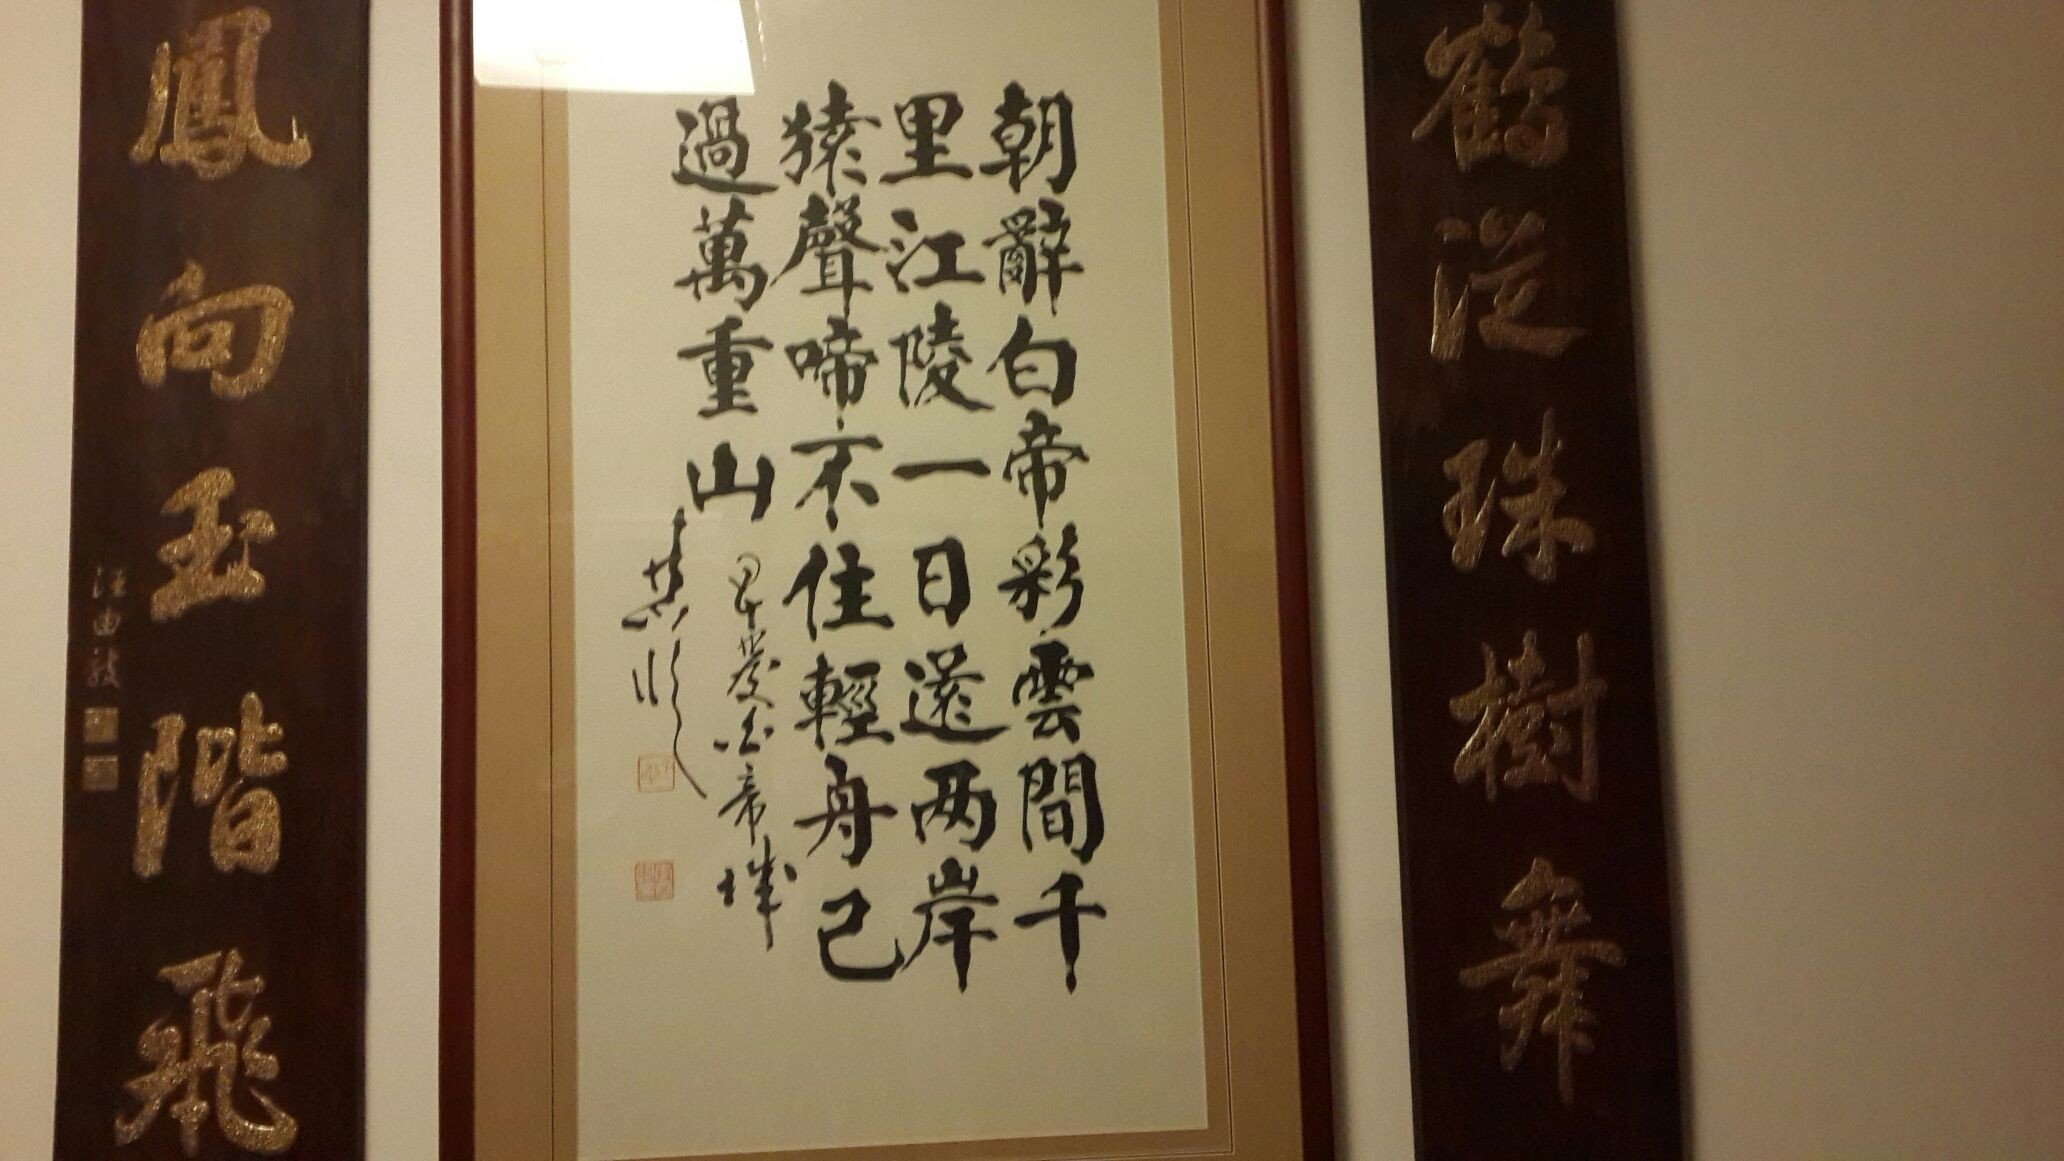 鶴從珠樹舞
朝辭白帝彩雲間千
里江陵一日還两岸
猿聲啼不住輕舟已
過萬重山
白帝城
鳳向玉階飛
汪由敦